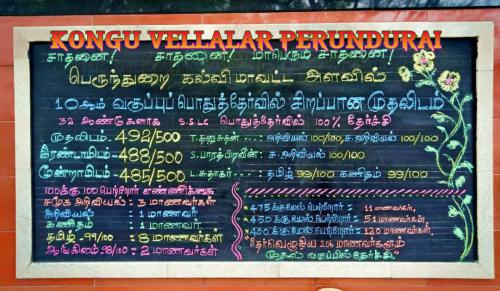 KONGU VELLALAR PERUNDURAI
சாதனை! சாதனை! மாபெரும் சாதனை!
பெருந்துறை கல்வி மாவட்ட அளவில்
10ஆம் வகுப்புப் பொதுத்தேர்வில் சிறப்பான முதலிடம்
32 ஆண்டுகளாக S.S.L.C பொதுத்தேர்வில் 100% தேர்ச்சி
முதலிடம்- 492/500 T.தனுசுதன் ---: அறிவியல் 100/100, ச.அறிவியல் 100/100
இரண்டாமிடம்- 488/500 S.பாரத்பிரவீன்: ச.அறிவியல் 100/100
மூன்றாமிடம்- 485/500 L.சுதாகர் --: தமிழ் 99/100 கணிதம் 99/100
100க்கு 100 பெற்றோர் எண்ணிக்கை
சமூக அறிவியல் : 3 மாணவர்கள்
அறிவியல் : 1 மாணவர்
கணிதம் : 1 மாணவர்
தமிழ் -99/100 : 8 மாணவர்கள்
ஆங்கிலம் 98/100 : 2 மாணவர்கள்
* 475க்குமேல் பெற்றோர் : 11 மாணவர்கள்,
* 450க்குமேல் பெற்றோர் : 51 மாணவர்கள்,
* 400க்குமேல் பெற்றோர் : 120 மாணவர்கள்,
தேர்வெழுதிய 206 மாணவர்களும்
முதல் வகுப்பில் தேர்ச்சி."